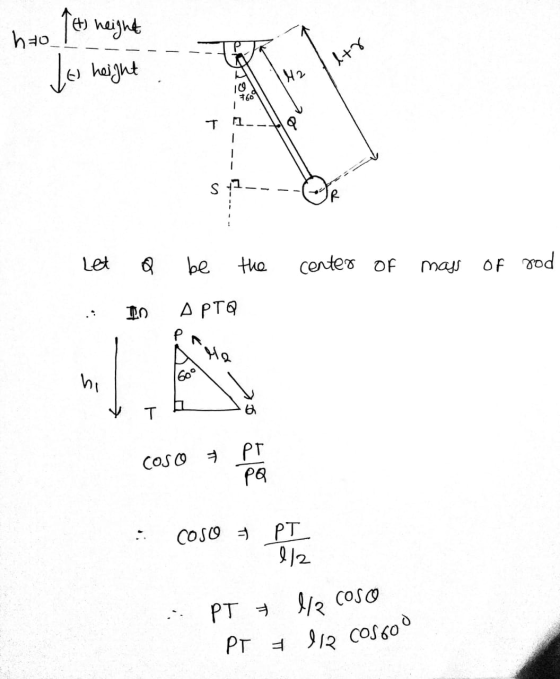 (+) height
h=0
(-) height
P
θ
=60°
l/2
l+r
T
Q
S
R
Let Q be the center of mass of rod
∴ In Δ PTQ
P
l/2
60°
h₁
T
Q
cosθ ⇒ PT
PQ
∴ cosθ ⇒ PT
l/2
∴ PT ⇒ l/2 cosθ
PT ⇒ l/2 cos60°